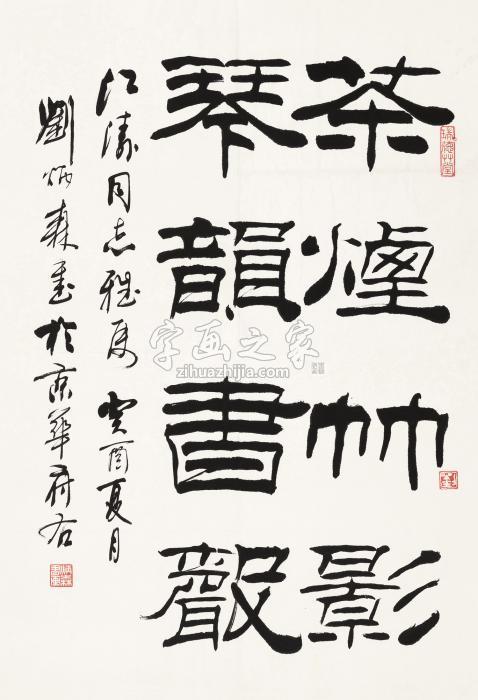 茶煙竹影
琴韻書聲
江濤同志雅属 癸酉夏月
劉炳森並於京華寓右
字画之家
zihuazhijia.com